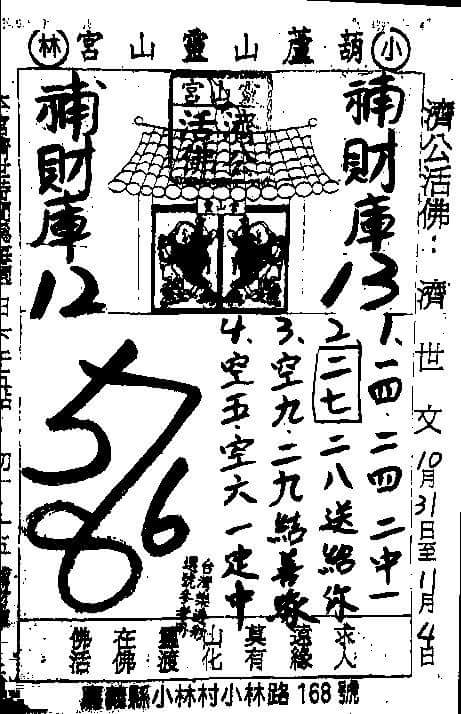 小 葫蘆山靈山宮 林
靈山宮
濟公活佛
濟公活佛：濟世文 10月31日至11月4日
補財庫
13
補財庫
12
1、一四·二四二中一
2、二七 二八送給你
3、空九·二九結善緣
4、空五·空六一定中
5 7
8 6
佛在靈山莫遠求
活佛渡化有緣人
嘉義縣小林村小林路168號